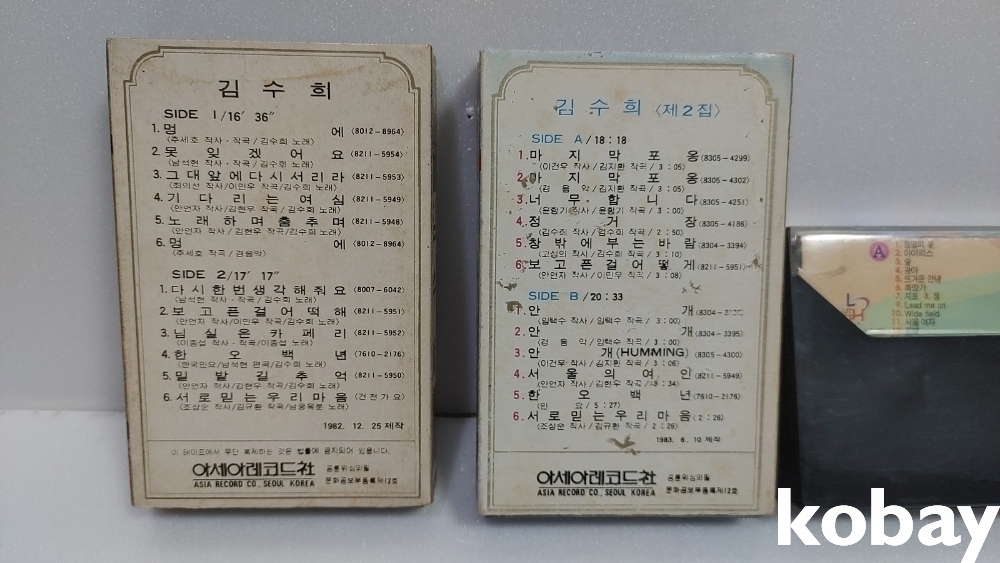 김수희
SIDE 1/16′ 36″
1. 멍에 (8012-8964)
(추세호 작사·작곡/김수희 노래)
2. 못잊겠어요 (8211-5954)
(남석현 작사·작곡/김수희 노래)
3. 그대앞에다시서리라 (8211-5953)
(최의선 작사/이민우 작곡/김수희 노래)
4. 기다리는여심 (8211-5949)
(안언자 작사/김현우 작곡/김수희 노래)
5. 노래하며춤추며 (8211-5948)
(안언자 작사/김현우 작곡/김수희 노래)
6. 멍에 (8012-8964)
(추세호 작곡/경음악)
SIDE 2/17′ 17″
1. 다시한번생각해줘요 (8007-6042)
(남석현 작사·작곡/김수희 노래)
2. 보고픈걸어떡해 (8211-5951)
(안언자 작사/이민우 작곡/김수희 노래)
3. 님실은카페리 (8211-5952)
(이종섭 작사·작곡/이종섭 노래)
4. 한오백년 (7610-2176)
(한국민요/남석현 편곡/김수희 노래)
5. 밀밭길추억 (8211-5950)
(안언자 작사/김현우 작곡/김수희 노래)
6. 서로믿는우리마음 (건전가요)
(조상순 작사/김규환 작곡/남웅목론 노래)
1982. 12. 25 제작
이 테이프에서 무단 복제하는 것은 법률에 금지되어 있읍니다.
아세아레코드社
ASIA RECORD CO., SEOUL KOREA
공륜위심의필
문화공보부등록제12호
김수희 〈제2집〉
SIDE A/18:18
1. 마지막포옹 (8305-4299)
(이건우 작사/김지환 작곡/3:05)
2. 마지막포옹 (8305-4302)
(경음악/김지환 작곡/3:05)
3. 너무합니다 (8305-4251)
(윤항기 작사/윤항기 작곡/3:00)
4. 정거장 (8305-4186)
(김수희 작사/김수희 작곡/2:50)
5. 창밖에부는바람 (8304-3394)
(고상인 작사/김수희 작곡/3:10)
6. 보고픈걸어떻게 (8211-5951)
(안언자 작사/이민우 작곡/3:08)
SIDE B/20:33
1. 안개 (8304-
(임택수 작사/임택수 작곡/3:00)
2. 안개 (8304-3395)
(경음악/임택수 작곡/3:00)
3. 안개 (HUMMING) (8305-4300)
(이건우 작사/김지환 작곡/3:06)
4. 서울의여인 (8211-5949)
(안언자 작사/김현우 작곡/3:34)
5. 한오백년 (7610-2176)
(민요/5:27)
6. 서로믿는우리마음 (2:26)
(조상순 작사/김규환 작곡/2:26)
1983. 6. 10 제작
아세아레코드社
ASIA RECORD CO., SEOUL KOREA
공륜위심의필
문화공보부등록제12호
A
2. 아이리스
3. 술
4. 광야
5. 뜨거운 안녕
6. 희망가
9. Lead me on
10. Wide field
11. 서울 여자
kobay